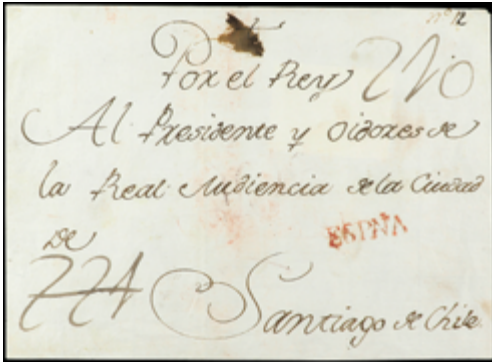 nº 12
Por el Rey
Al Presidente y Oidores de
la Real Audiencia de la Ciudad
de
ESPÑA
Santiago de Chile